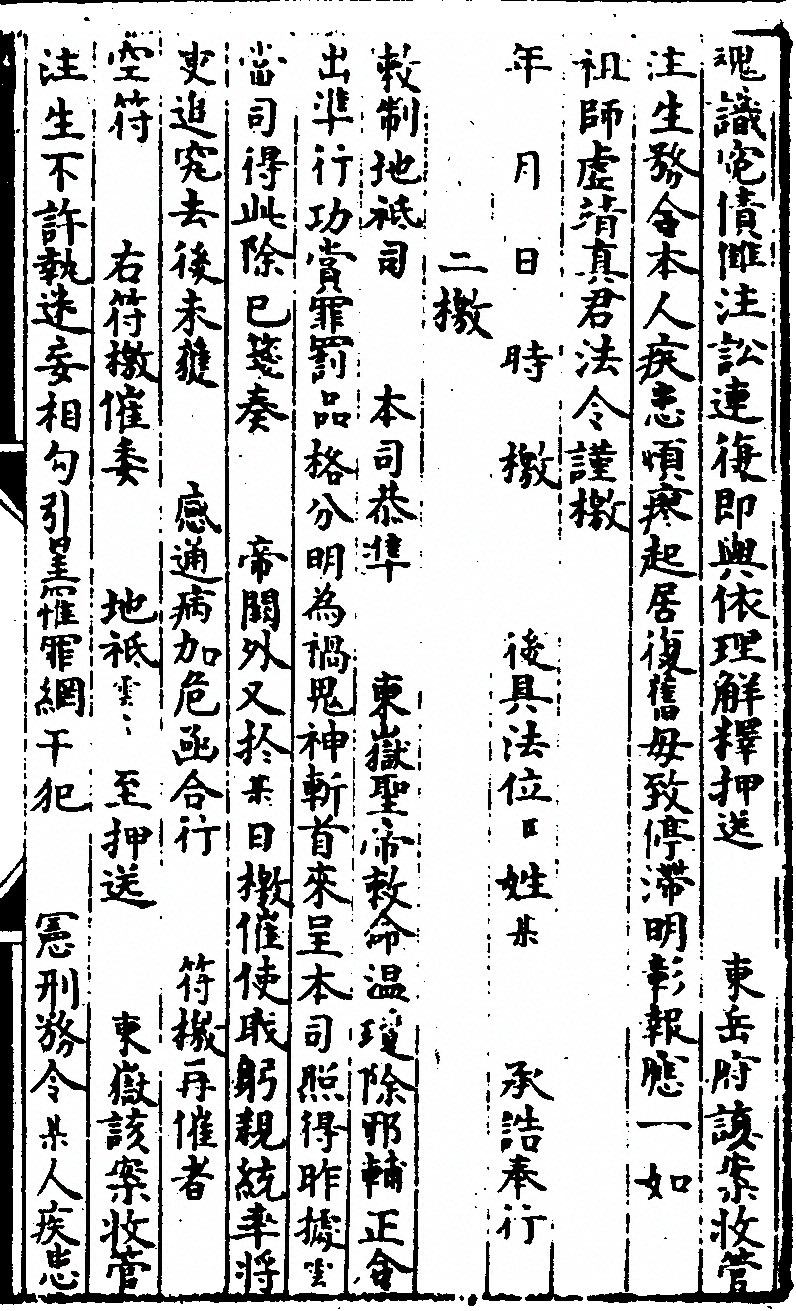 魂識寃債讎注訟連復即與依理解釋押送　東岳府該案收管
注生務令本人疾患煩瘳起居復舊毋致停滯明彰報應一如
祖師虛靖真君法令謹檄
年　月　日　時　檄　後具法位　姓某　承誥奉行
二檄
敕制地祇司　本司恭準　東嶽聖帝敕命温瓊除邪輔正含
出準行功賞罪罰品格分明為禍鬼神斬首來呈本司照得昨據云
當司得此除已箋奏　帝闕外又於某日檄催使職躬親統率將
吏追究去後未獲　感通病加危亟合行　符檄再催者
空符　右符檄催委　地祇云云　至押送　東嶽該案收管
注生不許執迷妄相勾引罣罹罪網干犯　憲刑務令某人疾患